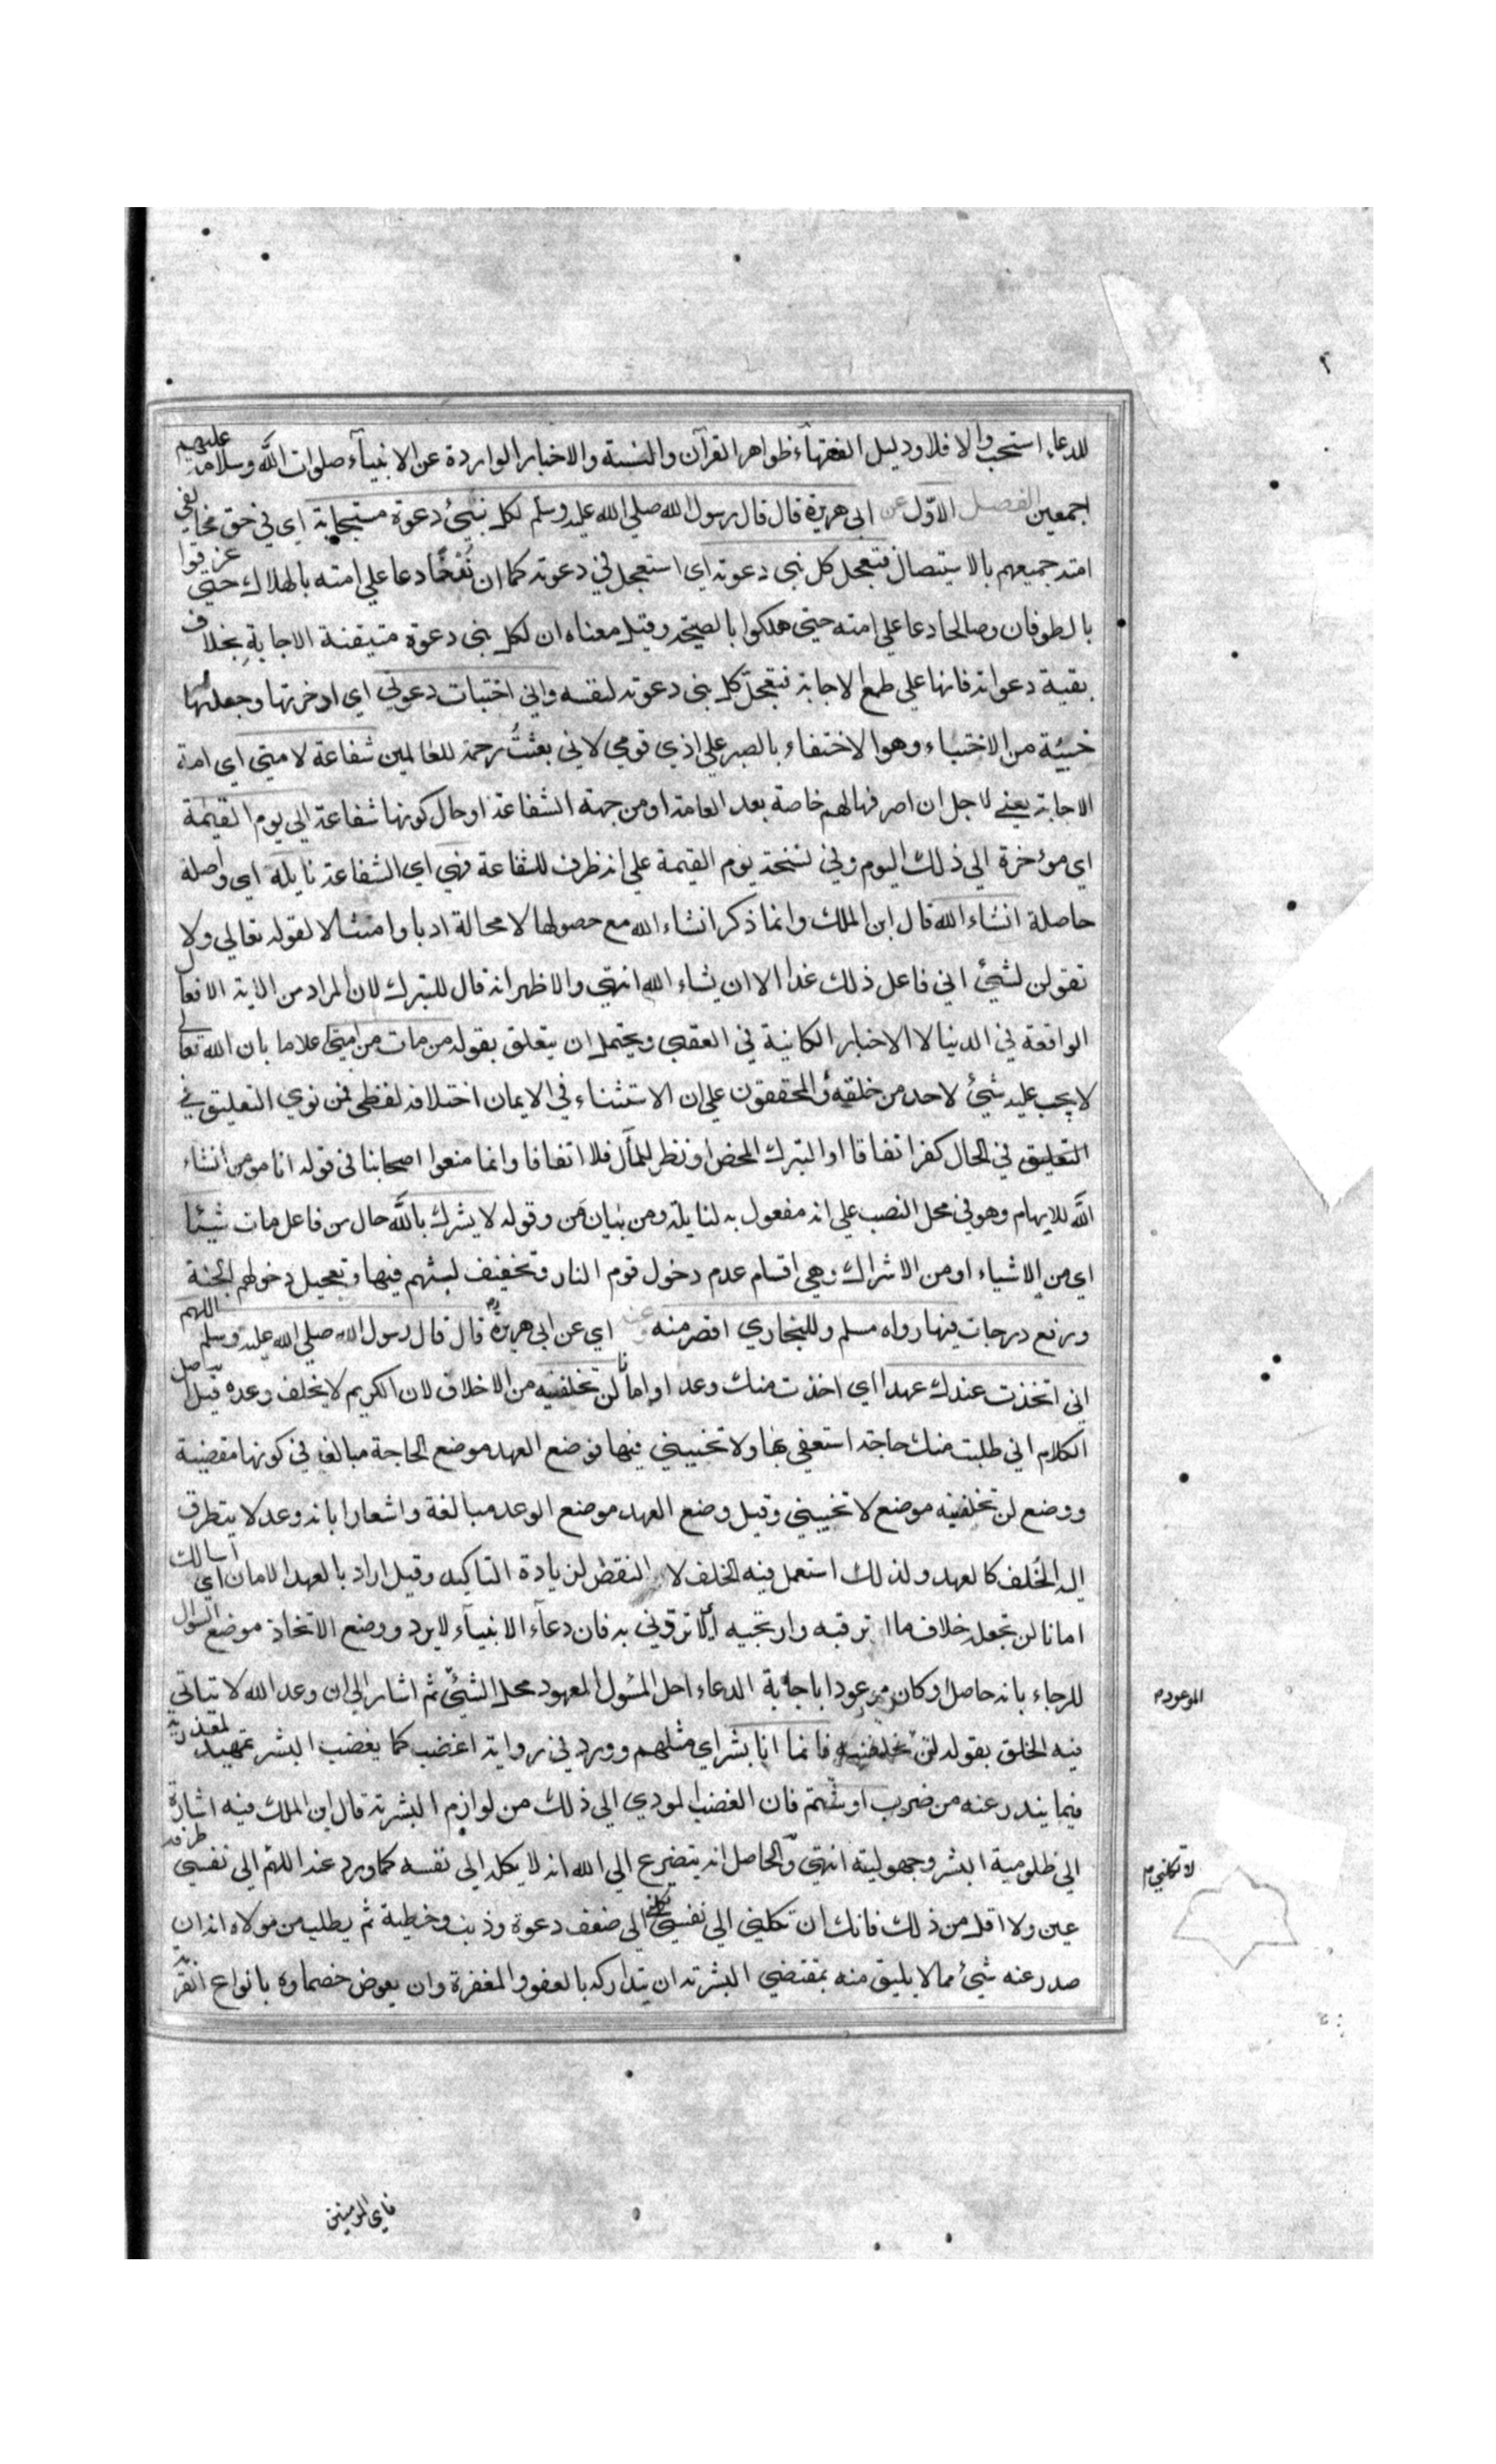 ٢
للدعاء استحب والا فلا ودليل الفقهآء ظواهر القرآن والسنة والاخبار الواردة عن الانبيآء صلوات الله وسلامه عليهم
اجمعين الفصل الاوّل عن ابي هريرة قال قال رسول الله صلي الله عليه وسلم لكل نبيّ دعوة مستجابة اي في حق مخالفي
امته جميعهم بالاستيصال فتعجل كل نبي دعوته اي استعجل في دعوته كما ان نُوْحًا دعا علي امته بالهلاك حتي غرقوا
بالطوفان وصالحا دعا علي امته حتي هلكوا بالصيحة وقيل معناه ان لكل نبي دعوة متيقنة الاجابة بخلاف
بقية دعواته فانها علي طمع الاجابة فتعجل كل نبي دعوته لنفسه واني اختبات دعوتي اي ادخرتها وجعلتها
خبيئة من الاختباء وهو الاختفاء بالصبر علي اذي قومي لاني بعثتُ رحمة للعالمين شفاعة لامتي اي امة
الاجابة يعني لاجل ان اصرفها لهم خاصة بعد العامة او من جهة الشفاعة او حال كونها شفاعة الي يوم القيمة
اي موخرة الي ذلك اليوم وفي نسخة يوم القيمة علي انه ظرف للشفاعة فهي اي الشفاعة نايلة اي واصلة
حاصلة انشاء الله قال ابن الملك وانما ذكر انشاء الله مع حصولها لا محالة ادبا وامتثالا لقوله تعالي ولا
تقولن لشيئ اني فاعل ذلك غدا الا ان يشاء الله انتهي والاظهر انه قال للتبرك لان المراد من الاية الافعال
الواقعة في الدنيا لا الاخبار الكائنة في العقبي ويحتمل ان يتعلق بقوله من مات من امتي علاما بان الله تعالي
لا يجب عليه شيئ لاحد من خلقه والمحققون علي ان الاستثناء في الايمان اختلافه لفظي فمن نوي التعليق في
التعليق في الحال كفر اتفاقا او التبرك المحض او نظر للمآل فلا اتفاقا وانما منعوا اصحابنا في قوله انا مومن انشاء
الله للايهام وهو في محل النصب علي انه مفعول به لنايلة ومن بيان مَن وقوله لا يشرك بالله حال من فاعل مات شيئا
اي من الاشياء او من الاشراك وهي اقسام عدم دخول قوم النار وتخفيف لبثهم فيها وتعجيل دخولهم الجنة
ورفع درجات فيها رواه مسلم وللبخاري اقصر منه وعنه اي عن ابي هريرة قال قال رسول الله صلي الله عليه وسلم اللهم
اني اتخذت عندك عهدا اي اخذت منك وعدا او امانا لن تخلفنيه من الاخلاف لان الكريم لا يخلف وعده قيل اصل
الكلام اني طلبت منك حاجة استعفي بها ولا تخيبني فيها فوضع العهد موضع الحاجة مبالغة في كونها مقضية
ووضع لن تخلفنيه موضع لا تخيبني وقيل وضع العهد موضع الوعد مبالغة واشعارا بانه وعد لا يتطرق
اليه الخُلف كالعهد ولذلك استعمل فيه الخلف لا النقض لزيادة التاكيد وقيل اراد بالعهد الامان اي اسالك
امانا لن تجعله خلاف ما اترقبه وارتجيه اي لا تردني به فان دعآء الانبيآء لا يرد ووضع الاتخاذ موضع السوال
للرجاء بانه حاصل او كان موعودا باجابة الدعاء احل المسُول المعهود محل الشيئ ثم اشار الي ان وعد الله لا يتاتي
الموعود م
فيه الخلف بقوله لن تخلفنيه فانما انا بشر اي مثلهم وورد في رواية اغضب كما يغضب البشر تمهيد لمعذرته
فيما يندر عنه من ضرب او شتم فان الغضب المودي الي ذلك من لوازم البشرية قال ابن الملك فيه اشارة
الي ظلومية البشر وجهوليته انتهي والحاصل انه يتضرع الي الله انه لا يكله الي نفسه كما ورد عنه اللهم الي نفسي طرفة
لا تكلني م
عين ولا اقل من ذلك فانك ان تكلني الي نفسي تكلني الي ضعف دعوة وذنب وخطية ثم يطلب من مولاه انه ان
صدر عنه شيئ مما لا يليق منه بمقتضي البشرية ان يتداركه بالعفو والمغفرة وان يعوض خصماوه بانواع القربة
فاي المومنين